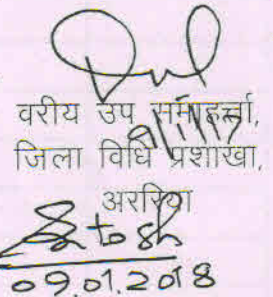 वरीय उप समाहर्त्ता,
जिला विधि प्रशाखा,
अररिया
09.01.2018